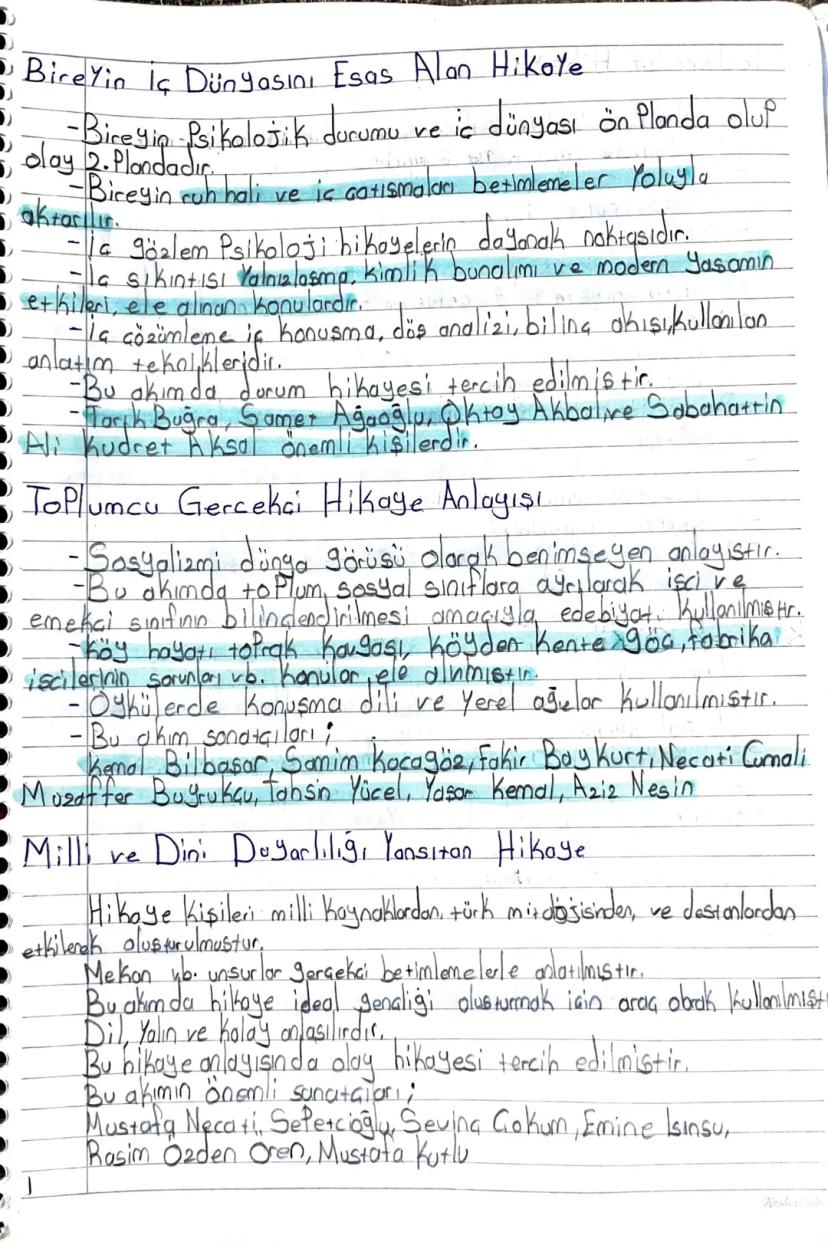 Bireyin İç Dünyasını Esas Alan Hikaye
-Bireyin Psikolojik durumu ve iç dünyası ön Planda olup
olay 2. Plandadır.
-Bireyin ruh hali ve iç çatışmaları betimlemeler Yoluyla
aktarılır.
-İç gözlem Psikoloji hikayelerin dayanak noktasıdır.
-İç sıkıntısı Yalnızlaşma, kimlik bunalımı ve modern yaşamın
etkileri, ele alınan konulardır.
-İç çözümleme iç konuşma, düş analizi, bilinç akışı, kullanılan
anlatım teknikleridir.
-Bu akımda durum hikayesi tercih edilmiştir.
-Tarık Buğra, Samet Ağaoğlu, Oktay Akbal, ve Sabahattin
Ali Kudret Aksal önemli kişilerdir.
Toplumcu Gerçekçi Hikaye Anlayışı
-Sosyalizmi dünya görüşü olarak benimseyen anlayıştır.
-Bu akımda toplum, sosyal sınıflara ayrılarak işçi ve
emekçi sınıfının bilinçlendirilmesi amacıyla edebiyat kullanılmıştır.
-Köy hayatı toprak kavgası, köyden kente göç, fabrika
işcilerinin sorunları vb. konular ele alınmıştır.
-Öykülerde konuşma dili ve yerel ağızlar kullanılmıştır.
-Bu akım sanatçıları;
Kemal Bilbaşar, Samim Kocagöz, Fakir Baykurt, Necati Cumalı
Muzaffer Buyrukçu, Tahsin Yücel, Yaşar Kemal, Aziz Nesin
Milli ve Dini Duyarlılığı Yansıtan Hikaye
Hikaye Kişileri milli kaynaklardan, türk mitolojisinden, ve destanlardan
etkilenerek oluşturulmuştur.
Mekan vb. unsurlar gerçekçi betimlemelerle anlatılmıştır.
Bu akımda hikaye ideal gençliği oluşturmak için araç olarak kullanılmıştır
Dil, Yalın ve kolay anlaşılırdır.
Bu hikaye anlayışında olay hikayesi tercih edilmiştir.
Bu akımın önemli sanatçıları;
Mustafa Necati, Sepetcioğlu, Sevinç Çokum, Emine Işınsu,
Rasim Özden Ören, Mustafa Kutlu